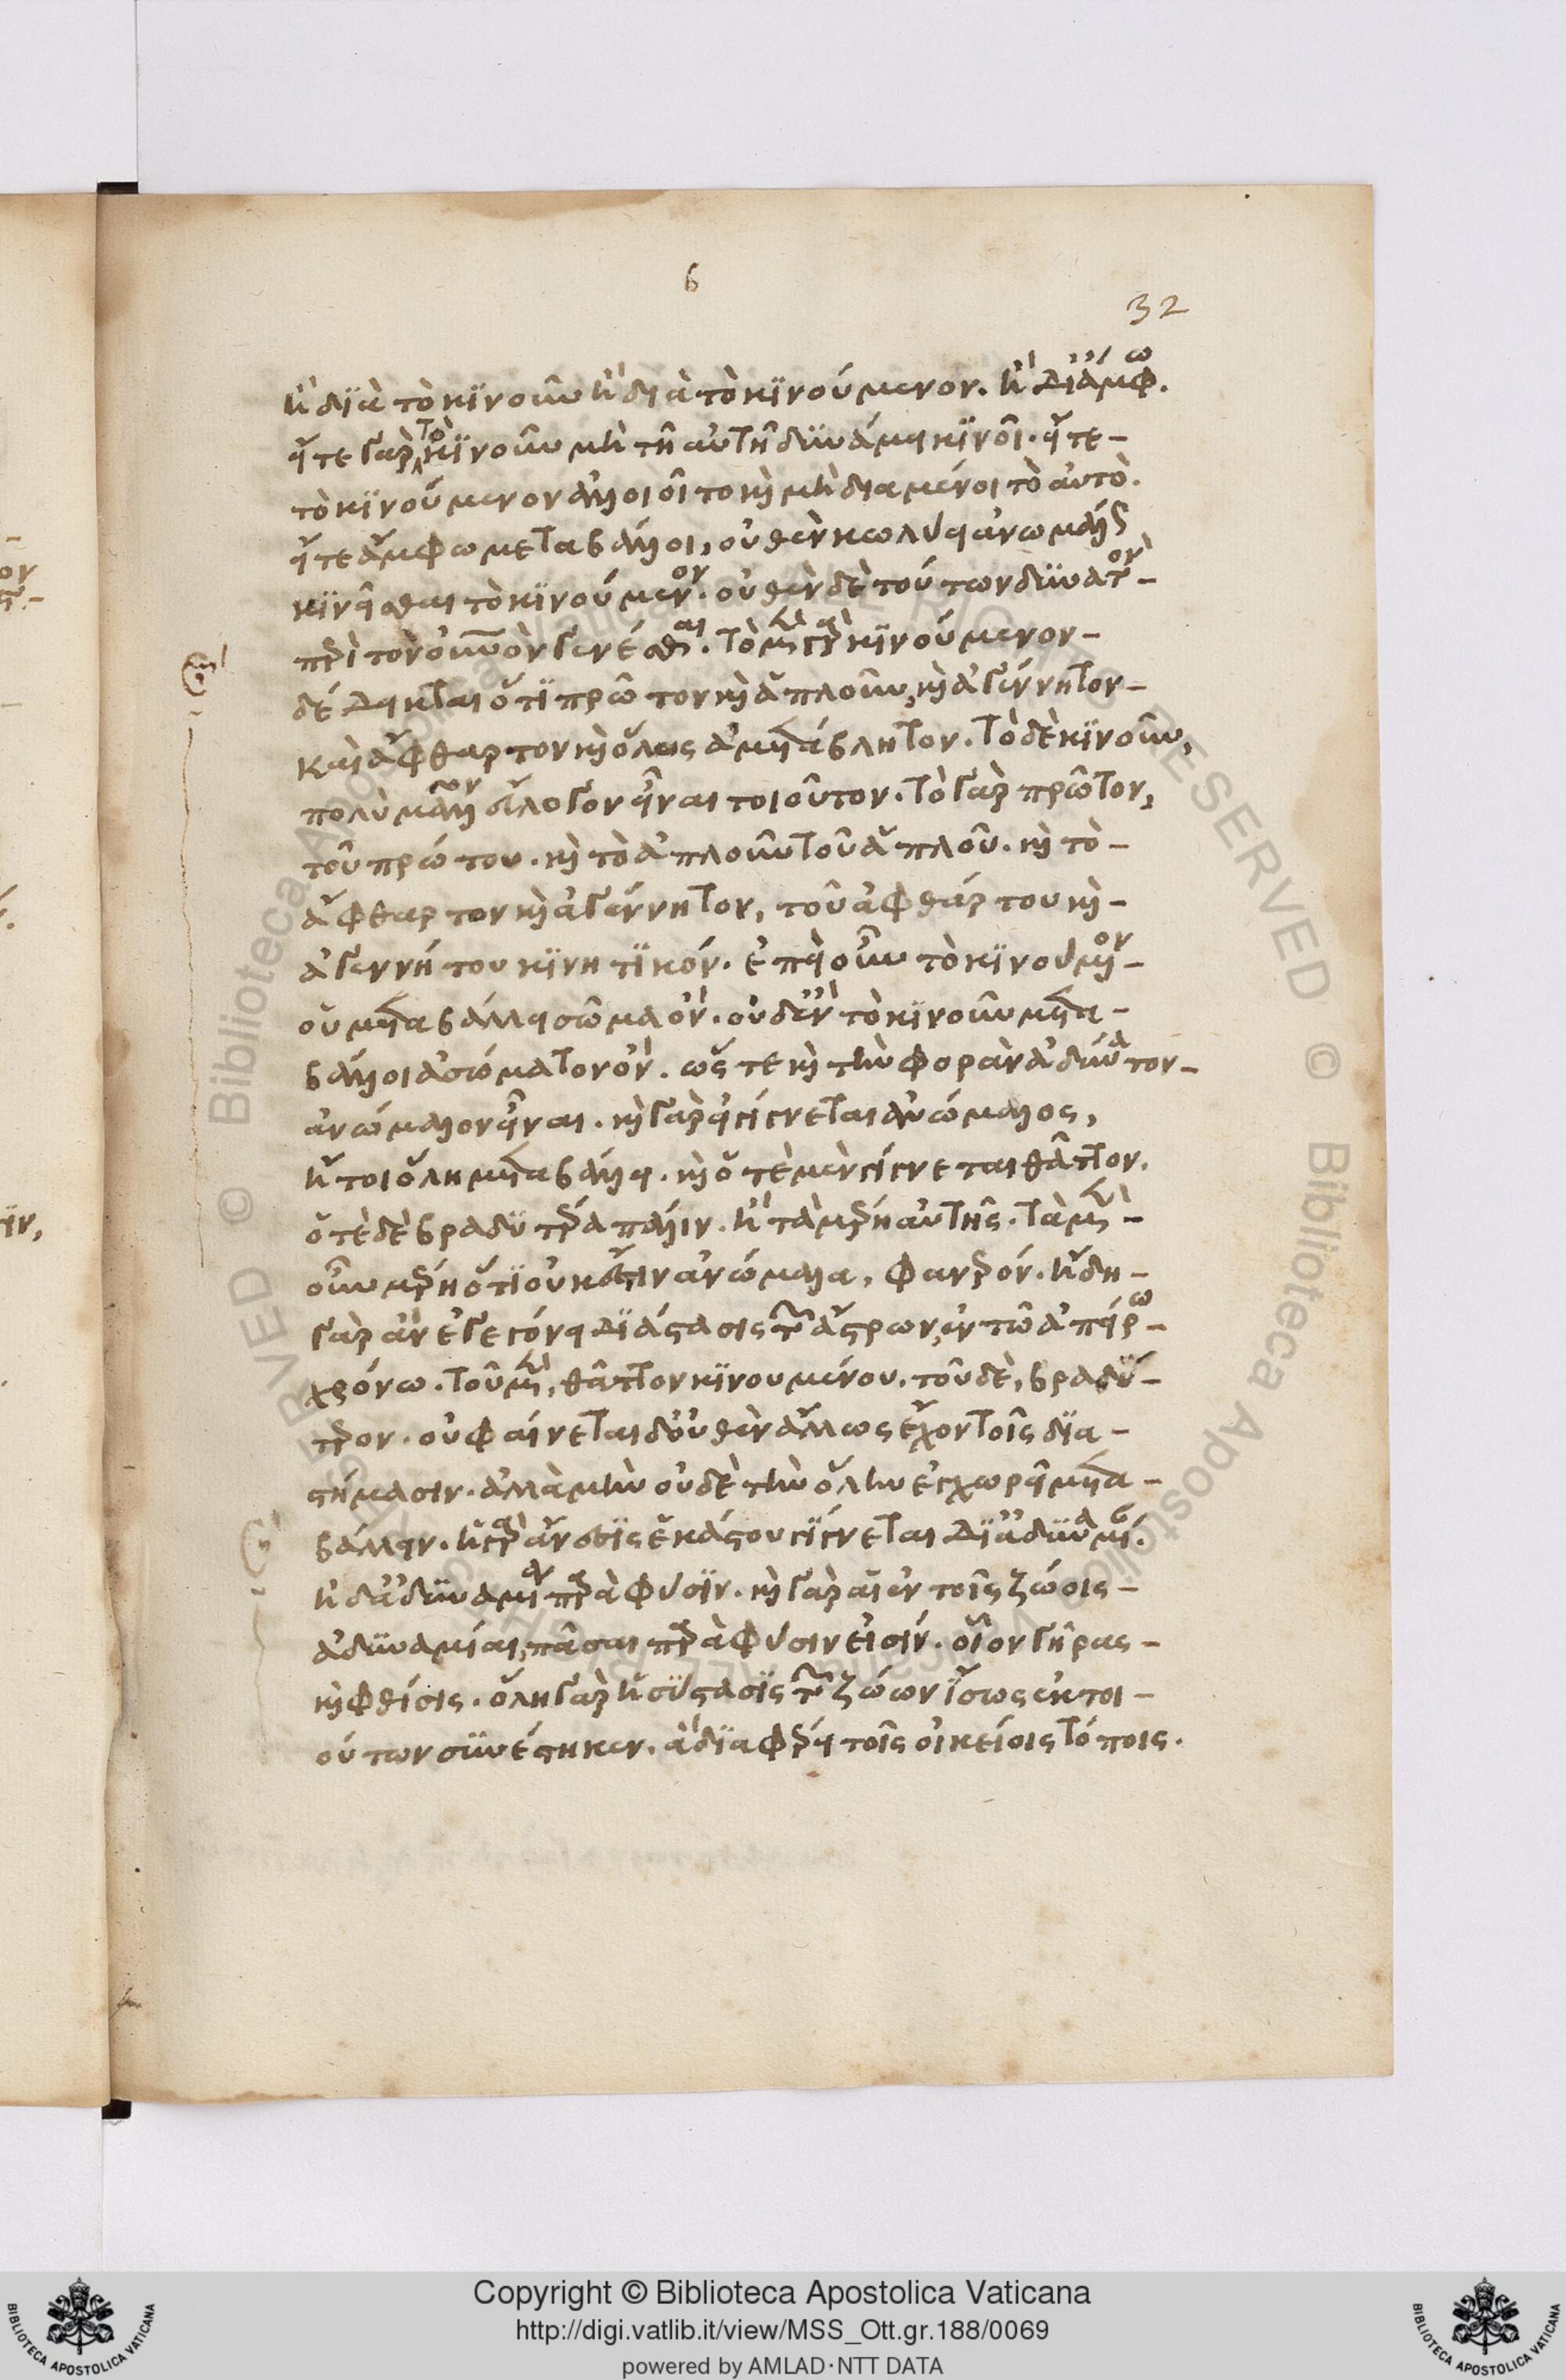 6
32
ἢ διὰ τὸ κινοῦν ἢ διὰ τὸ κινούμενον. ἢ δι' ἄμφω.
εἴτε γὰρ τὸ κινοῦν μὴ τῆ αὐτῆ δυνάμει κινοῖ. εἴτε-
τὸ κινούμενον ἀλλοιοῖτο καὶ μὴ διαμένοι τὸ αὐτὸ.
εἴτε ἄμφω μεταβάλλοι, οὐθὲν κωλύει ἀνωμάλως
κινεῖσθαι τὸ κινούμενον. οὐθὲν δὲ τούτων δυνατὸν-
περὶ τὸν οὐνὸν γενέσθαι. τὸ μὲν γὰρ κινούμενον-
δέδεικται ὅτι πρῶτον καὶ ἁπλοῦν, καὶ ἀγέννητον-
καὶ ἄφθαρτον καὶ ὅλως ἀμετάβλητον. τὸ δὲ κινοῦν,
πολὺ μᾶλλον εὔλογον εἶναι τοιοῦτον. τὸ γὰρ πρῶτον,
τοῦ πρώτου. καὶ τὸ ἁπλοῦν τοῦ ἁπλοῦ. καὶ τὸ-
ἄφθαρτον καὶ ἀγέννητον, τοῦ ἀφθάρτου καὶ-
ἀγεννήτου κινητικόν. ἐπεὶ οὖν τὸ κινούμενον-
οὐ μεταβάλλει σῶμα ὄν. οὐδ' ἂν τὸ κινοῦν μετα-
βάλλοι ἀσώματον ὄν. ὥστε καὶ τὴν φορὰν ἀδύνατον-
ἀνώμαλον εἶναι. καὶ γὰρ εἰ γίγνεται ἀνώμαλος,
ἤτοι ὅλη μεταβάλλει. καὶ ὁτὲ μὲν γίγνεται θᾶττον.
ὁτὲ δὲ βραδυτέρα πάλιν. ἢ τὰ μέρη αὐτῆς. τὰ μὲν-
οὖν μέρη ὅτι οὐκ ἔστιν ἀνώμαλα, φανερόν. ἤδη-
γὰρ ἂν ἐγεγόνει διάστασις τῶν ἄστρων, ἐν τῶ ἀπείρω-
χρόνω. τοῦ μὲν, θᾶττον κινουμένου. τοῦ δὲ, βραδύ-
τερον. οὐ φαίνεται δ' οὐθὲν ἄλλως ἔχον τοῖς δια-
στήμασιν. ἀλλὰ μὴν οὐδὲ τὴν ὅλην ἐγχωρεῖ μετα-
βάλλειν. ἡ γὰρ ἄνεσις ἑκάστου γίγνεται δι' ἀδυναμίαν.
ἡ δ' ἀδυναμία παρὰ φύσιν. καὶ γὰρ αἱ ἐν τοῖς ζώοις-
ἀδυναμίαι, πᾶσαι παρὰ φύσιν εἰσίν. οἷον γῆρας-
καὶ φθίσις. ὅλη γὰρ ἡ σύστασις τῶν ζώων ἴσως ἐκ τοι-
ούτων συνέστηκεν. ἃ διαφέρει τοῖς οἰκείοις τόποις.
Copyright © Biblioteca Apostolica Vaticana
http://digi.vatlib.it/view/MSS_Ott.gr.188/0069
powered by AMLAD·NTT DATA